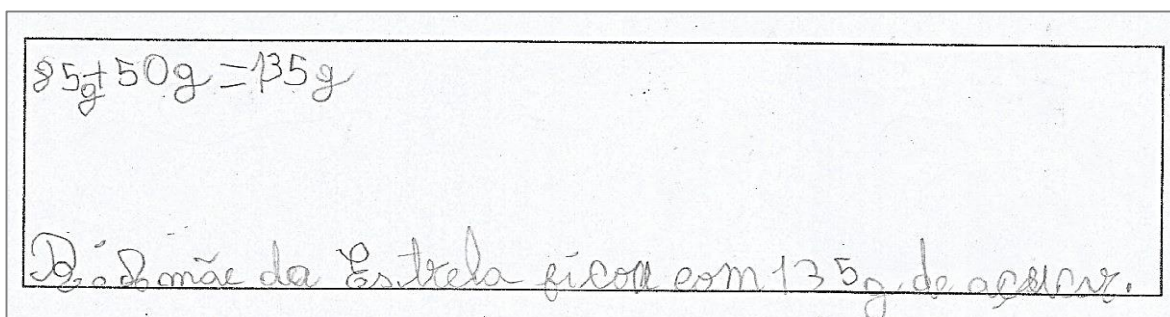 85g+50g=135g
R: A mãe da Estrela ficou com 135g de açúcar.